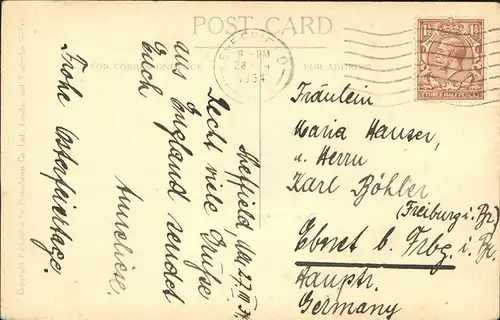 POST CARD
FOR CORRESPONDENCE
FOR ADDRESS
SHEFFIELD
8 - PM
28
1934
1½
1½
THREE HALFPENCE
Copyright. Publication by Photochrom Co. Ltd., London and Tunbridge Wells.
Sheffield, den 27. III. 34.
Recht viele Grüße
aus England sendet
Euch
Anneliese.
Frohe Osterfeiertage.
Fräulein
Maria Hauser,
u. Herrn
Karl Böhler
(Freiburg i. Br)
Ebnet b. Frbg. i. Br.
Hauptr.
Germany